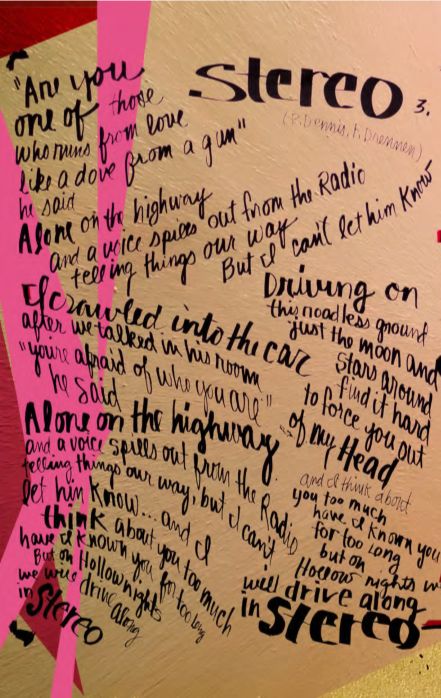 Stereo 3.
(P. Dennis, F. Drennen)
"Are you
one of those
who runs from love
like a dove from a gun"
he said
Alone on the highway
and a voice spills out from the Radio
telling things our way
But I can't let him Know
I crawled into the car
after we talked in his room
"you're afraid of who you are"
he said
Alone on the highway
and a voice spills out from the Radio
telling things our way, but I can't
let him Know... and I
think about you too much
have I known you for too long
But on Hollow nights
we will drive along
in Stereo
Driving on
this roadless ground
just the moon and
stars around
find it hard
to force you out
of my Head
and I think about
you too much
have I known you
for too long
but on
Hollow nights
we'll drive along
in Stereo